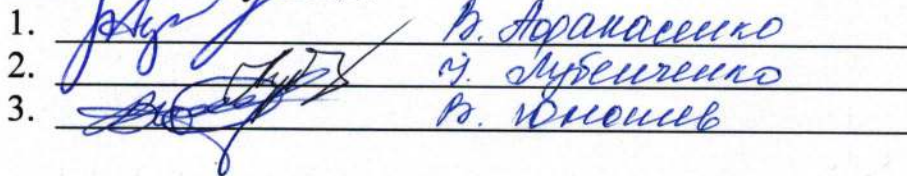 1. В. Афанасенко
2. І. Лубенченко
3. В. Юношев